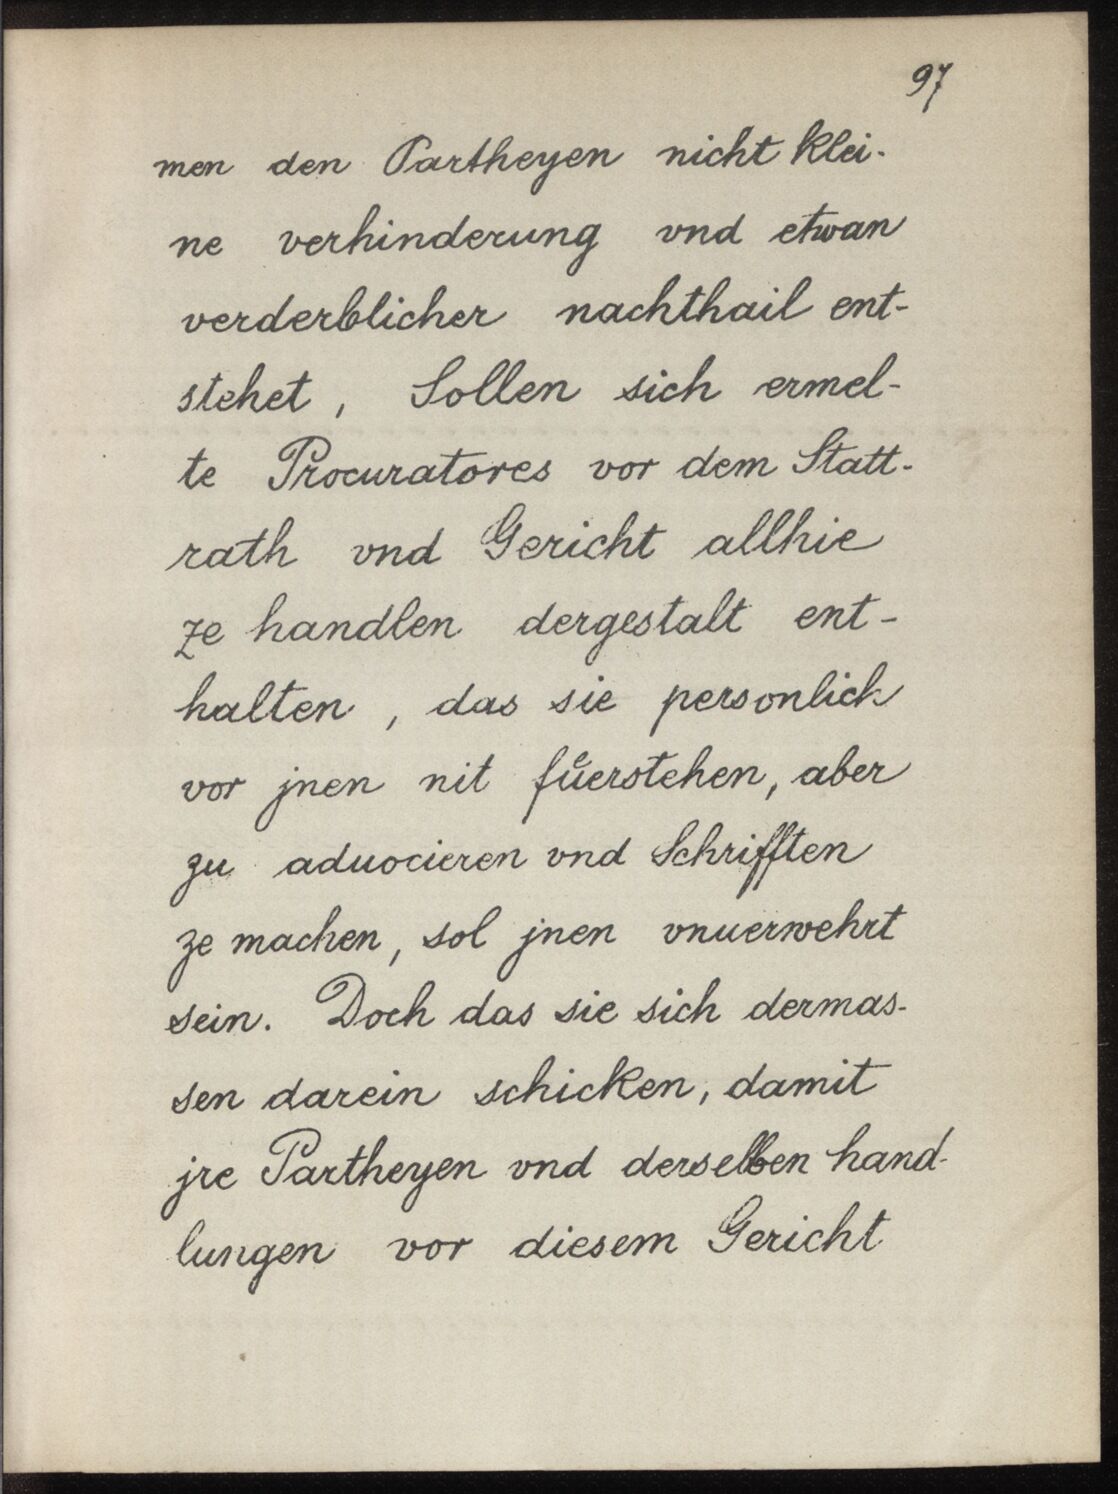 97
men den Partheyen nicht klei-
ne verhinderung vnd etwan
verderblicher nachthail ent-
stehet, Sollen sich ermel-
te Procuratores vor dem Statt-
rath vnd Gericht allhie
ze handlen dergestalt ent-
halten, das sie personlich
vor jnen nit fůerstehen, aber
zu aduocieren vnd Schrifften
ze machen, sol jnen vnuerwehrt
sein. Doch das sie sich dermas-
sen darein schicken, damit
jre Partheyen vnd derselben hand-
lungen vor diesem Gericht